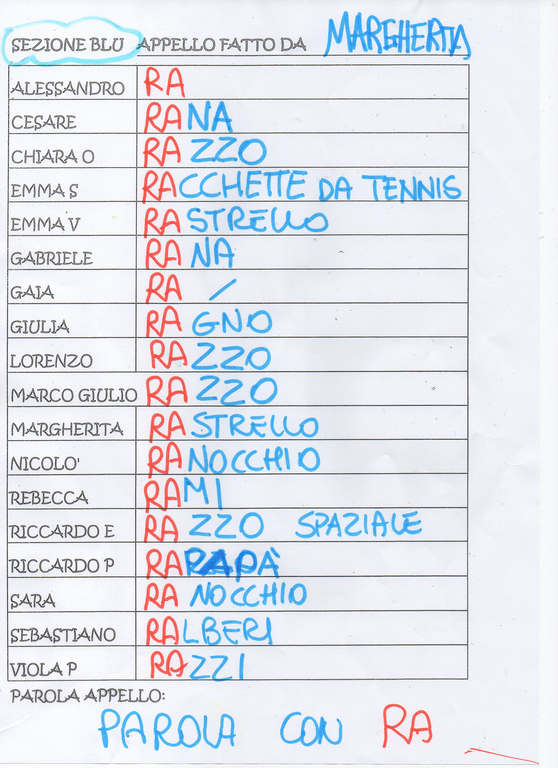 SEZIONE BLU APPELLO FATTO DA MARGHERITA
ALESSANDRO RA
CESARE RANA
CHIARA O RAZZO
EMMA S RACCHETTE DA TENNIS
EMMA V RASTRELLO
GABRIELE RANA
GAIA RA /
GIULIA RAGNO
LORENZO RAZZO
MARCO GIULIO RAZZO
MARGHERITA RASTRELLO
NICOLO' RANOCCHIO
REBECCA RAMI
RICCARDO E RAZZO SPAZIALE
RICCARDO P RARAPÀ
SARA RANOCCHIO
SEBASTIANO RALBERI
VIOLA P RAZZI
PAROLA APPELLO:
PAROLA CON RA